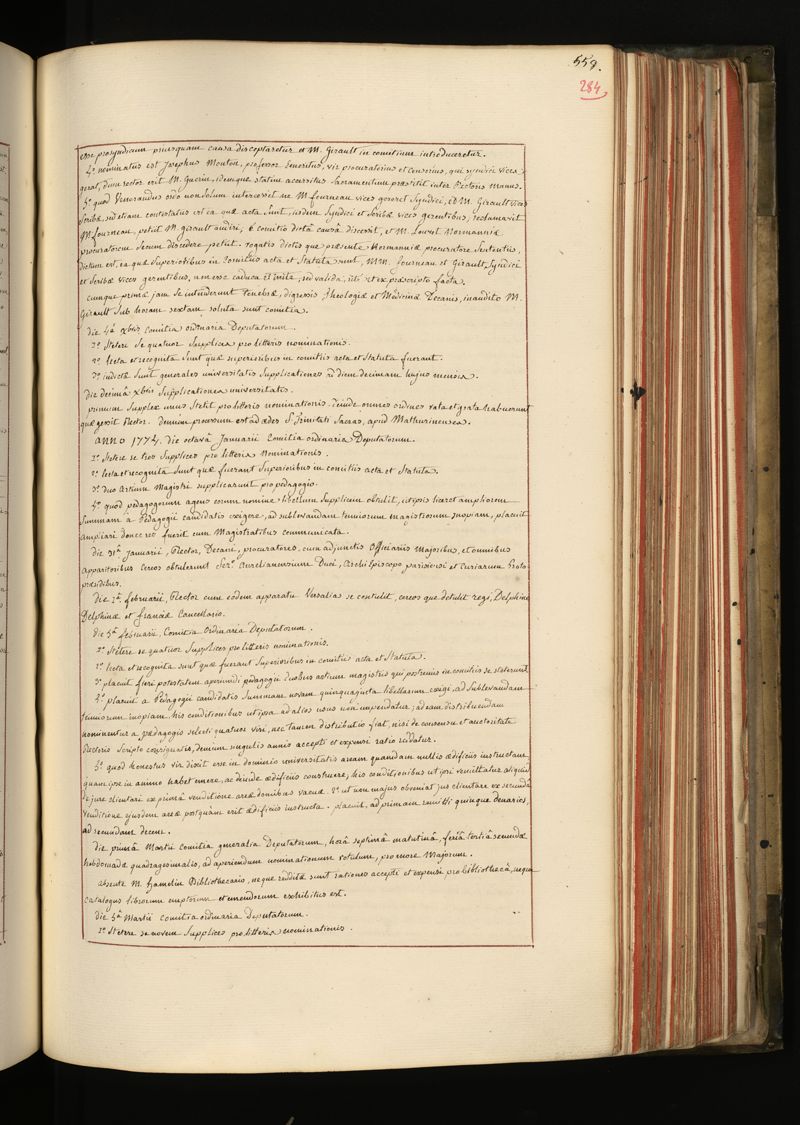 559.
284
esse prosyndicum priusquam causa disceptaretur et M. Girault in comitium introduceretur.
4° nominatus est Josephus Monton, professor Emeritus, vir procuratorius et Censorius, qui syndici vices
gerat, dum rector erit M. Guerin, idemque statim accersitus sacramentum praestitit inter Rectoris manus.
5° quod Venerandus ordo non solum intercessit ne M fourneau vices gereret Syndici, et M. Girault vices
scribae, sed etiam contestatus est ea quae acta sunt, iisdem Syndici et Scribae vices gerentibus, reclamavit
M. fourneau, petiit M. girault audiri; è comitio dictâ causâ discessit, et M. Louvel Normanniae
procuratorem secum discedere petiit. rogatis dictis que praesente Normanniae procuratore sententiis,
dictum est, ea quae superioribus in Comitiis acta et Statuta sunt, MM. Fourneau et Girault, Syndici
et scribae vices gerentibus, non esse caduca et irrita, sed valida, rite et ex praescripto facta.
cumque primae jam se intenderent tenebrae, digressis theologiae et Medicinae Decanis, inaudito M.
Girault sub horam sextam, soluta sunt comitia.
die 4â xbris Comitia ordinaria Deputatorum.
1° Stetere se quatuor Supplices pro litteris nominationis.
2° lecta et recognita sunt quae superioribus in comitiis acta et Statuta fuerant.
3° indictae sunt generales universitatis Supplicationes ad diem decimam hujus mensis.
die decimâ xbris Supplicationes universitatis.
primum Supplex unus Stetit pro litteris nominationis. deinde omnes ordines rata et grata habuerunt
quae gessit Rector. demum processum est ad aedes Sae Trinitatis Sacras, apud Mathurinenses.
Anno 1774, die octavâ Januarii Comitia ordinaria Deputatorum.
1° Stetere se tres Supplices pro litteris nominationis.
2° lecta et recognita sunt quae fuerant superioribus in comitiis acta et Statuta.
3° duo Artium Magistri supplicarunt pro pedagogio.
4° quod pedagogorum agens eorum nomine libellum Supplicem obtulit, ut ipsis liceret ampliorem
Summam à Pedagogii candidatis exigere, ad sublevandam seniorum magistrorum inopiam, placuit
ampliari donec res fuerit cum Magistratibus communicata.
die 31â Januarii, Rector, Decani, procuratores, cum adjunctis Officiariis Majoribus, et omnibus
Apparitoribus Cereos obtulerunt Ser° Aurelianensium Duci, Archiepiscopo parisiensi et Curiarum Proto-
praesidibus.
die 2â februarii, Rector cum eodem apparatu Versalias se contulit, cereos que detulit regi, Delphino
Delphinae et franciae Cancellario.
die 5â februarii, Comitia Ordinaria Deputatorum.
1° Stetere se quatuor Supplices pro litteris nominationis.
2° lecta et recognita sunt quae fuerant superioribus in comitiis acta et Statuta.
3° placuit fieri potestatem aperiundi pedagogii duobus artium magistris qui postremis in comitiis se steterunt.
4° placuit à Pedagogii candidatis Summam novam quinquaginta libellarum exigi, ad sublevandam
seniorum inopiam, his conditionibus ut ipsa ad alios usus non impendatur; ad eam distribuendam
nominentur a paedagogis selecti quatuor viri, nec tamen distributio fiat, nisi de consensu et auctoritate
Rectoris scripto consignatis, demum singulis annis accepti et expensi ratio reddatur.
5° quod honestus vir dixit esse in dominio universitatis aream quandam nullis aedificiis instructam
quam ipse in animo habet emere, ac deinde aedificiis construere, his conditionibus ut ipsi remittatur aliquid
de jure clientari ex primâ venditione areae domibus vacuae 2° ut non majus obveniat jus clientare ex secundâ
venditione ejusdem areae postquam erit aedificiis instructa. placuit, ad primam remitti quinque denarios,
ad secundam decem.
die primâ Martii Comitia generalia Deputatorum, horâ septimâ matutinâ, feriâ tertiâ secundae
hebdomadae quadragesimalis, ad aperiendum nominationum rotulum, pro more Majorum.
absente M. Hamelin Bibliothecario, neque redditae sunt rationes accepti et expensi pro bibliothecâ, neque
catalogus librorum emptorum et emendorum exhibitus est.
die 5â Martii comitia ordinaria Deputatorum.
1° Stetere se novem Supplices pro litteris nominationis.